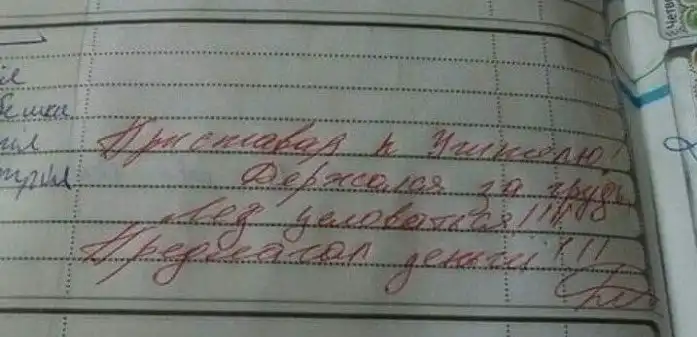 Четве
Приставал к Учителю!
Держался за грудь
Лез целоваться!!!!!
Предлагал деньги!!!